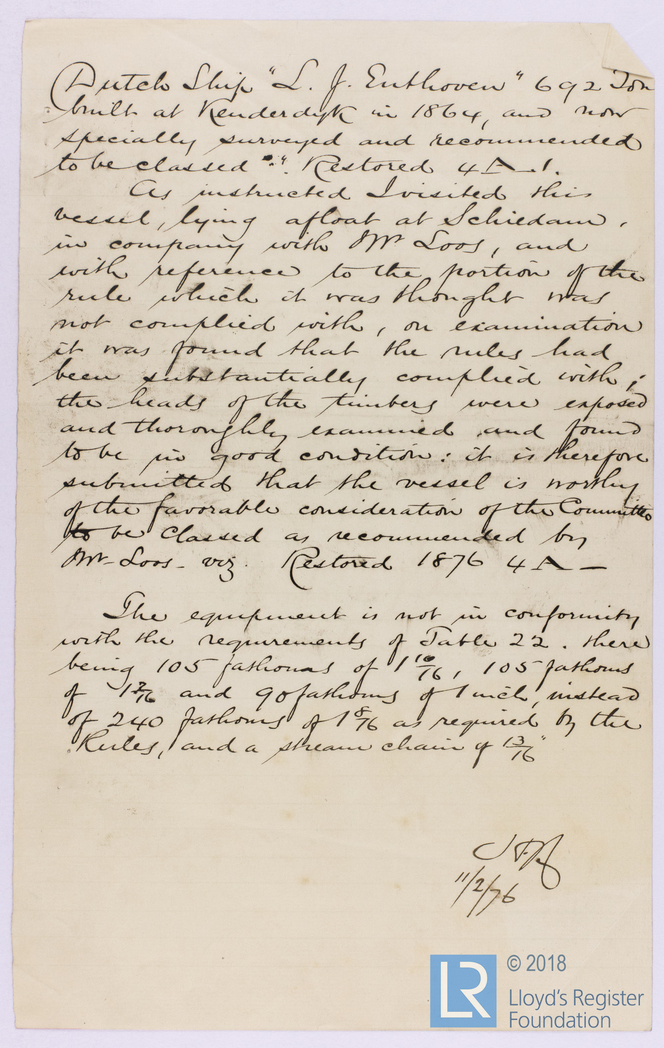 Dutch Ship "L. J. Enthoven" 692 Ton
built at Kenderdyk in 1864, and now
specially surveyed and recommended
to be classed "." Restored 4 A 1.
As instructed I visited this
vessel, lying afloat at Schiedam,
in company with Mr Loos, and
with reference to the portion of the
rule which it was thought was
not complied with, on examination
it was found that the rules had
been substantially complied with;
the heads of the timbers were exposed
and thoroughly examined and found
to be in good condition: it is therefore
submitted that the vessel is worthy
of the favorable consideration of the Committee
to be classed as recommended by
Mr Loos - viz. Restored 1876 4 A —
The equipment is not in conformity
with the requirements of Table 22. there
being 105 fathoms of 1 10/16, 105 fathoms
of and 90 fathoms of 1 inch, instead
of 240 fathoms of 1 8/16 as required by the
Rules, and a stream chain of 13/16"
11/2/76
LR
© 2018
Lloyd's Register
Foundation